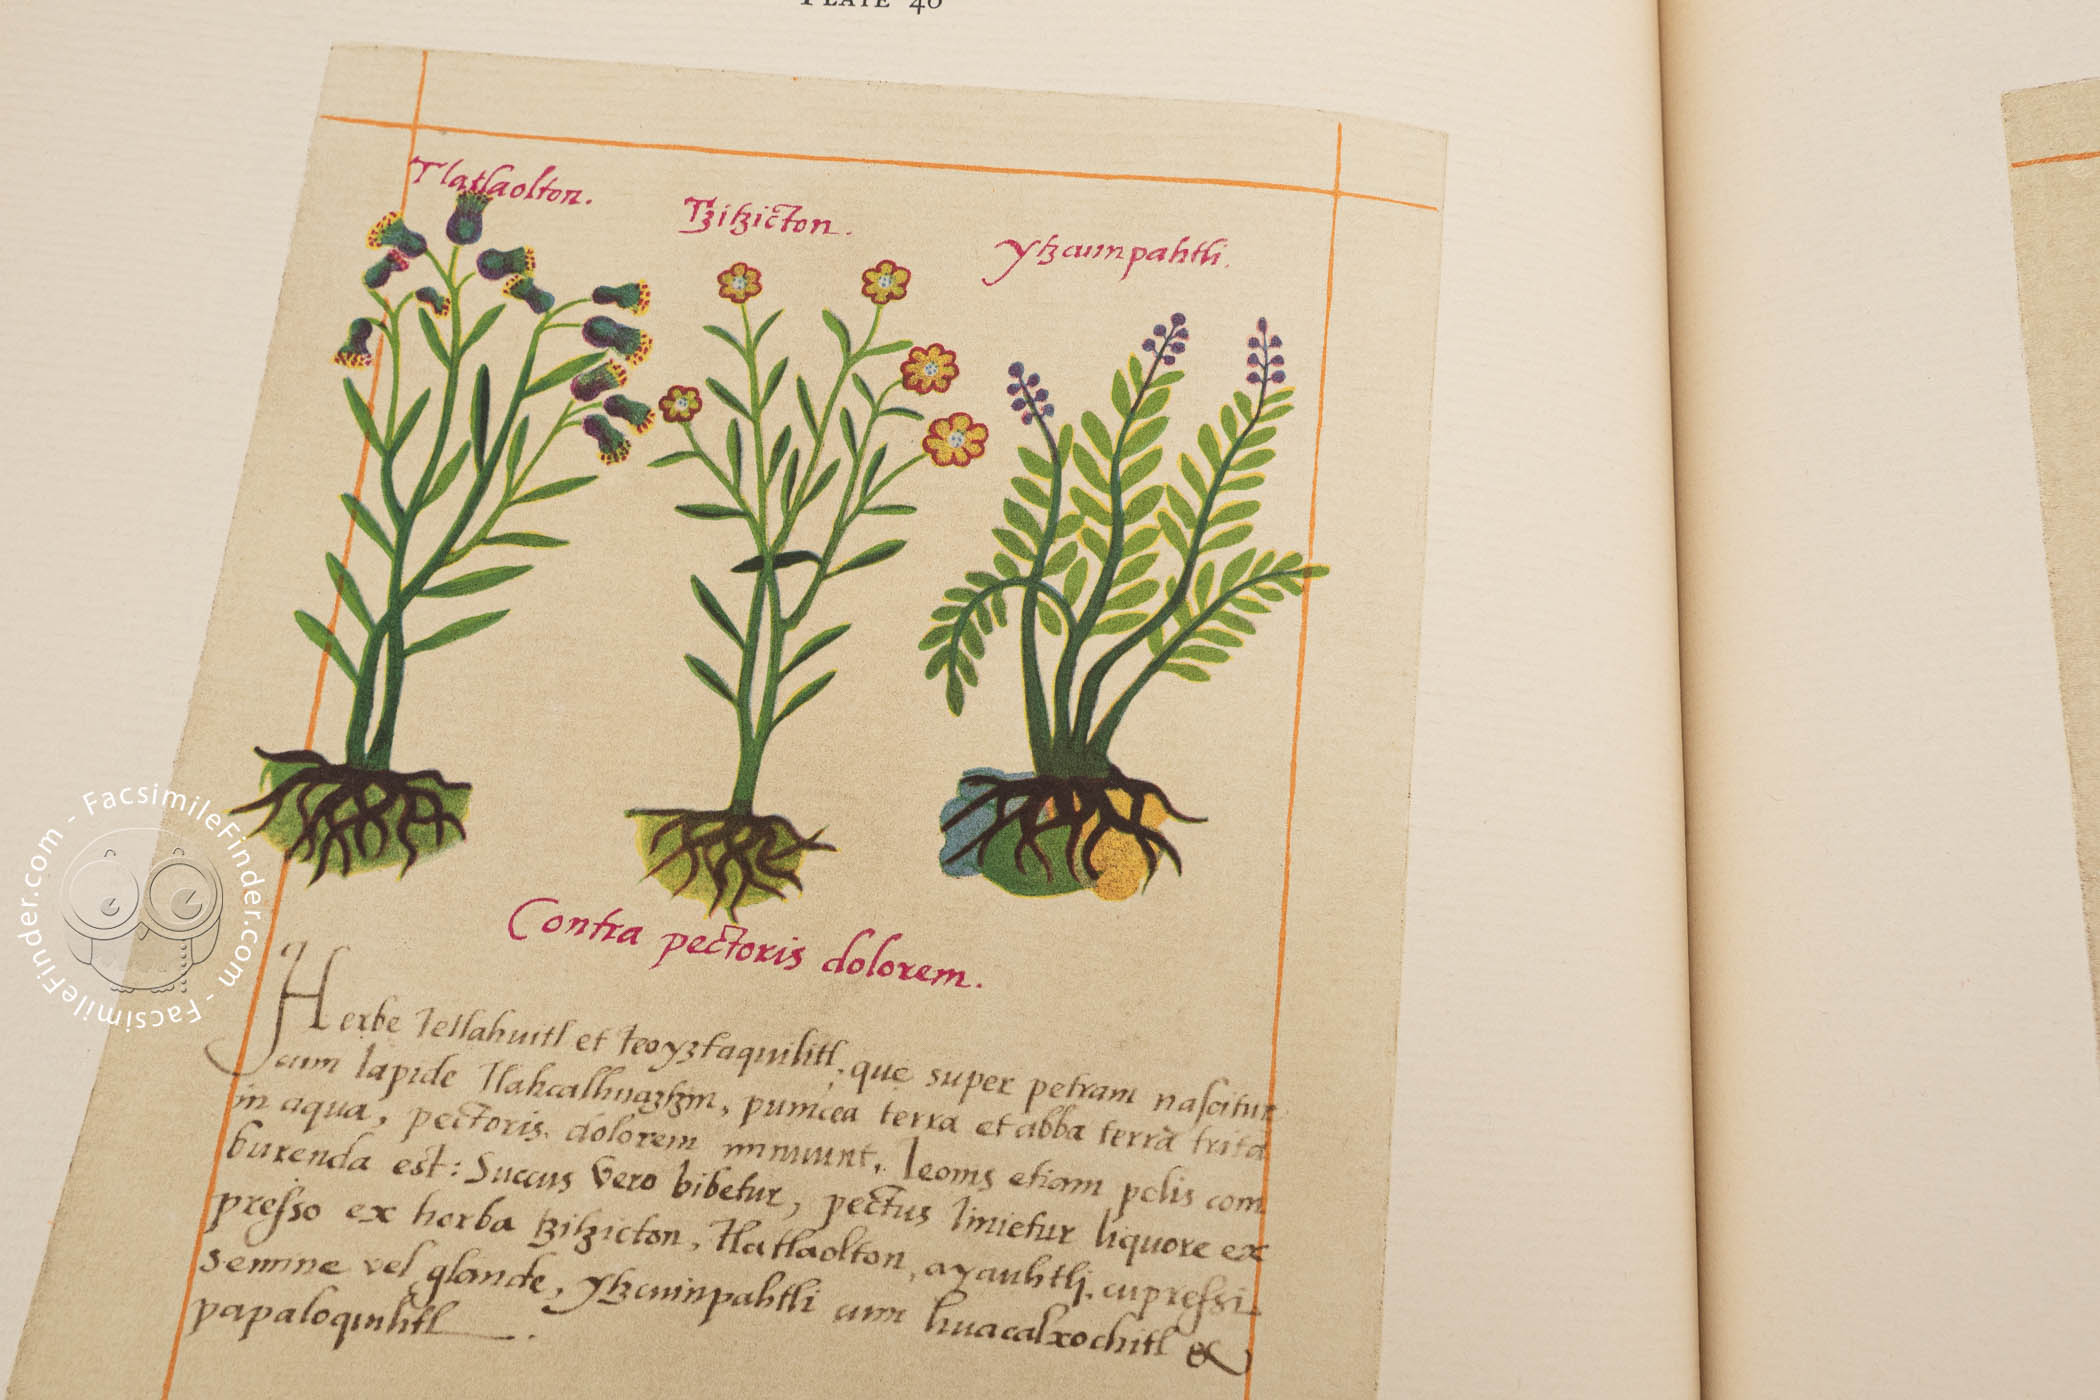 PLATE 40
Tlatlaolton.
Tzitzicton.
Ytzcuinpahtli.
Contra pectoris dolorem.
Herbe Tetlahuitl et teoyztaquilitl, que super petram nascitur
cum lapide Tlahcalhuatzin, pumicea terra et abba terra trita
in aqua, pectoris dolorem minuunt. leonis etiam pelis com
burenda est: Succus vero bibetur, pectus linietur liquore ex
presso ex herba tzitzicton, Tlatlaolton, ayauhtli, cupressi
semine vel glande, ytzcuinpahtli cum huacalxochitl &
papaloquilitl.
FacsimileFinder.com - FacsimileFinder.com - FacsimileFinder.com -